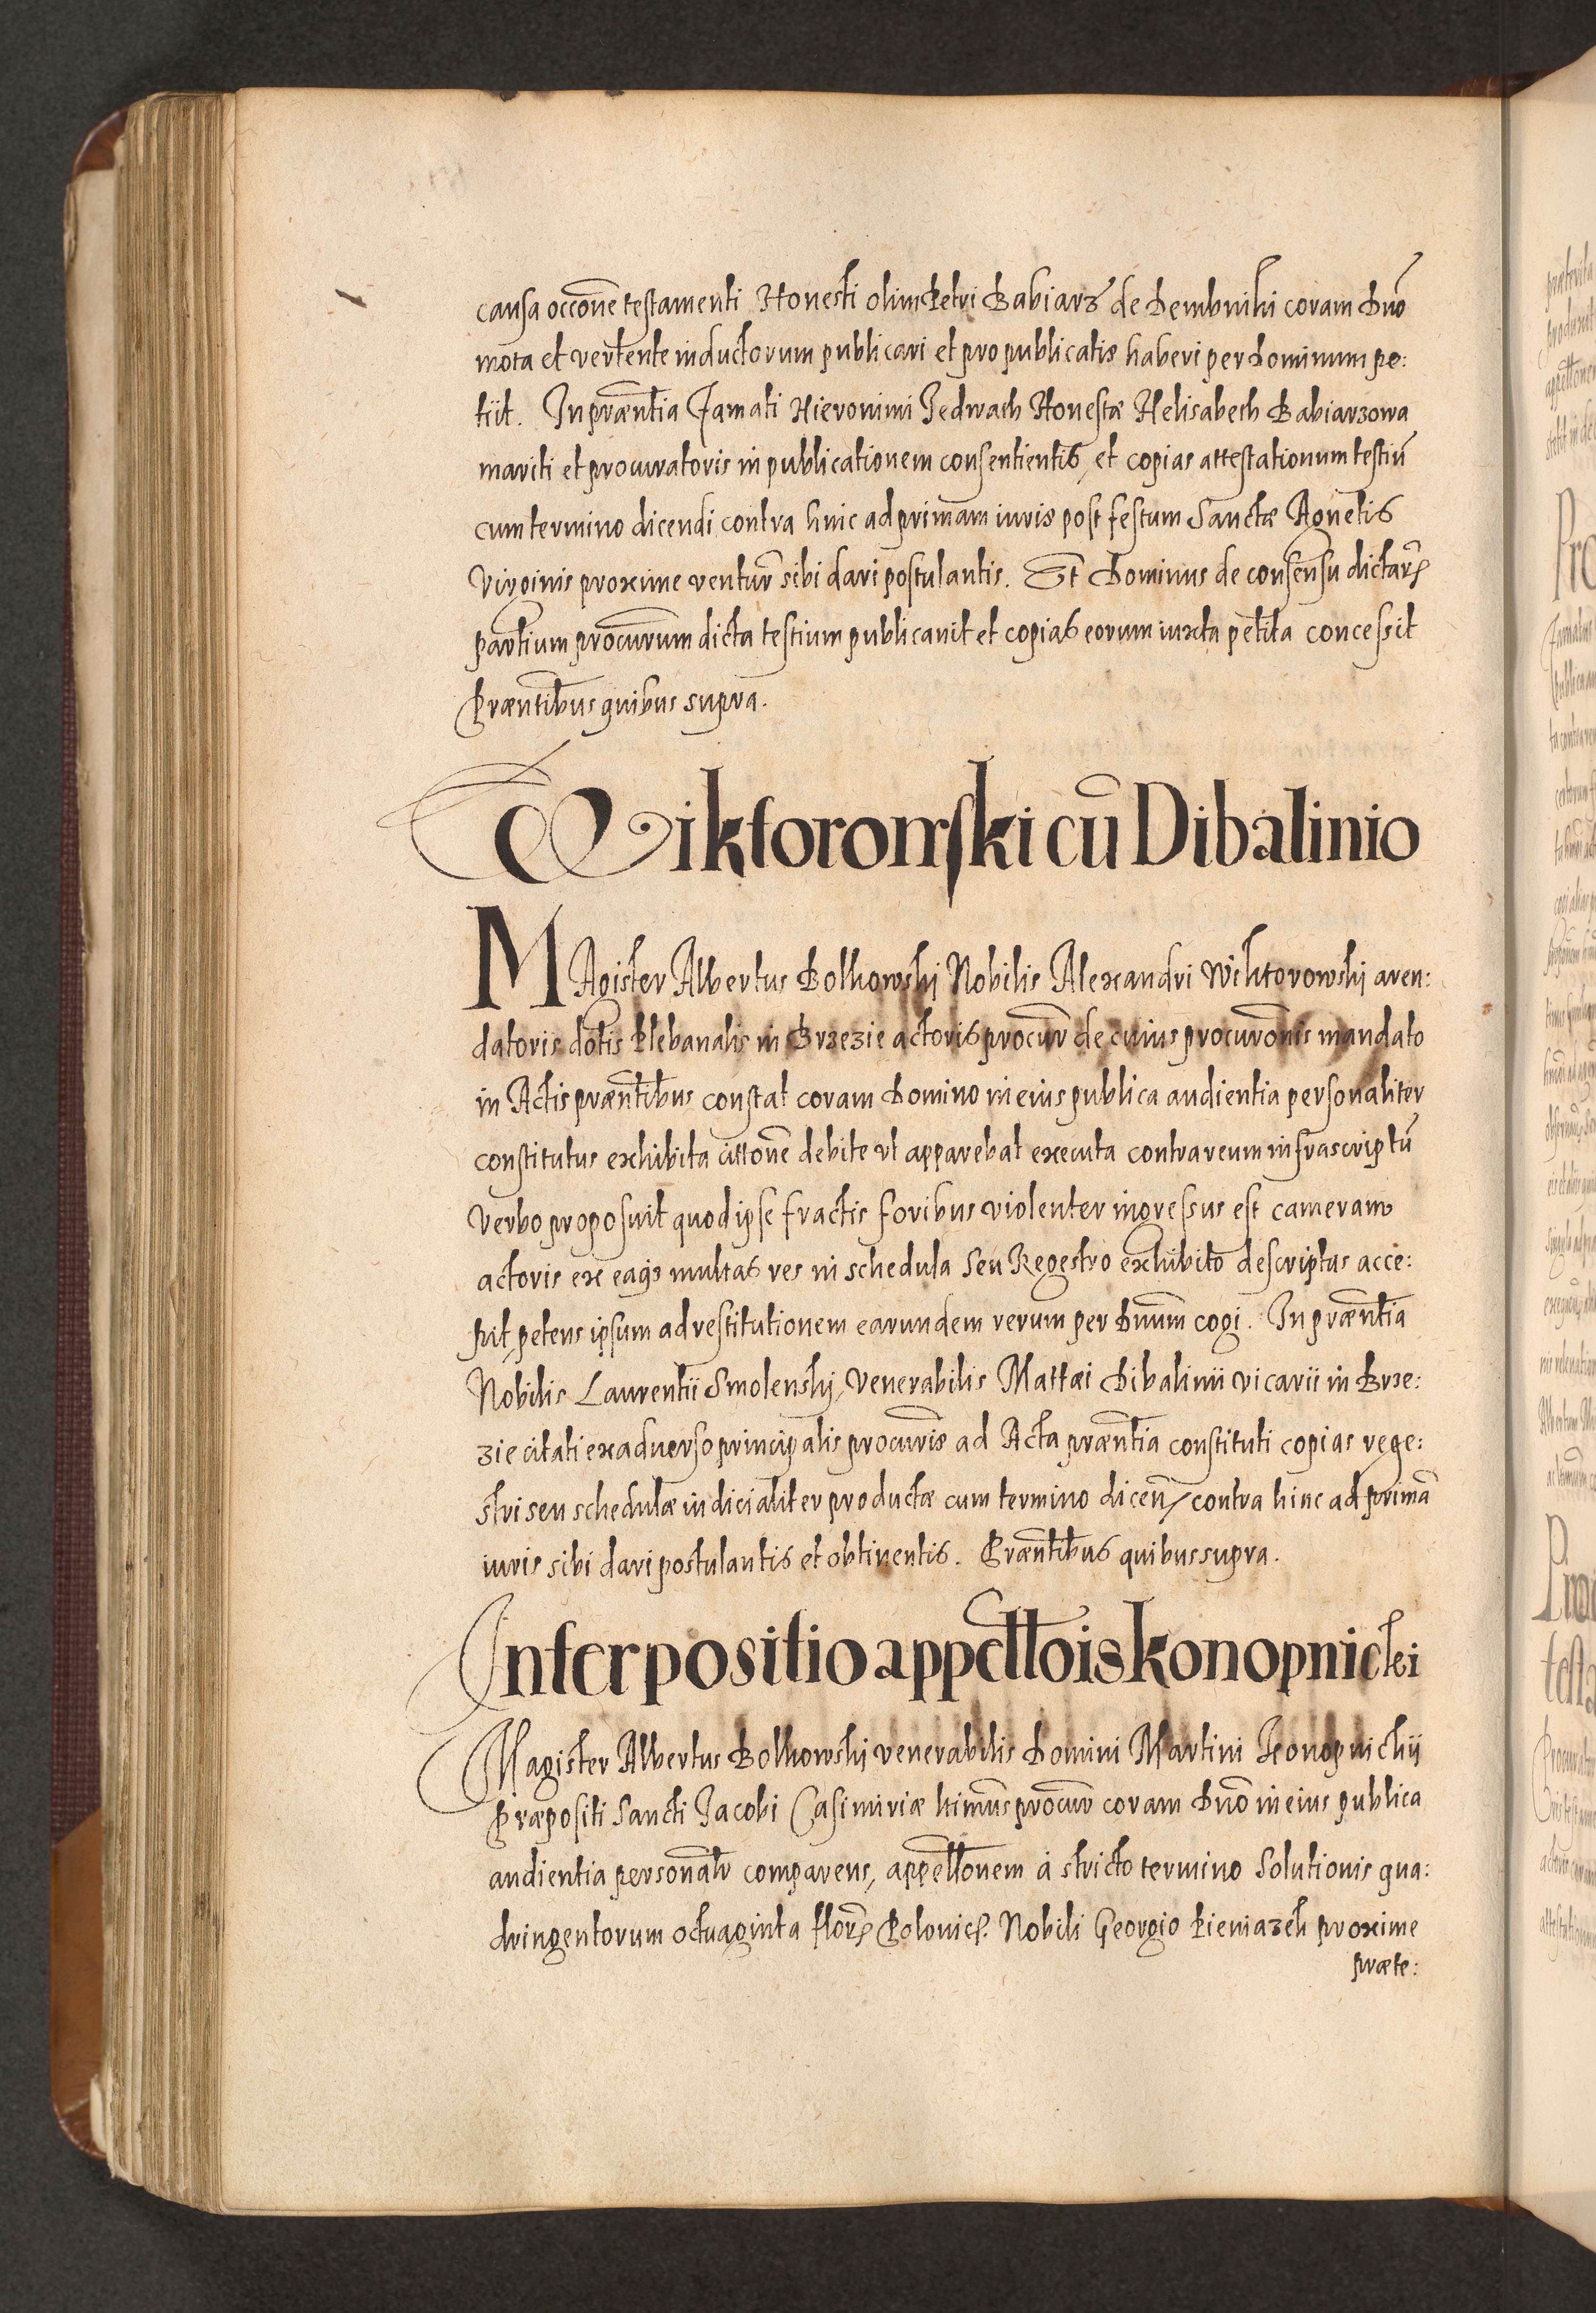 causa occōne testamenti Honesti olim Petri Babiarz de Dembniki coram Dnō
mota et vertente inductorum publicari et pro publicatis haberi per Dominum pe:
tiit. In præntia Famati Hieronimi Jedwach Honestæ Helisabeth Babiarzowa
mariti et procuratoris in publicationem consentientis, et copias attestationum testiū
cum termino dicendi contra hinc ad primam iuris post festum Sanctæ Agnetis
Virginis proxime ventur̄ sibi dari postulantis. Et Dominus de consensu dictar̄
partium procurum dicta testium publicauit et copias eorum iuxta petita concessit
Præntibus quibus supra.
Wiktorowski cū Dibalinio
MAgister Albertus Bolkowski Nobilis Alexandri Wiktorowski aren:
datoris dotis Plebanalis in Brzezie actoris procur̄ de cuius procurōnis mandato
in Actis præntibus constat coram Domino in eius publica audientia personaliter
constitutus exhibita cittōne debite vt apparebat executa contra reum infrascriptū
Verbo proposuit quod ipse fractis foribus violenter ingressus est cameram
actoris ex eaqȝ multas res in schedula seu Regestro exhibito descriptas acce:
pit, petens ipsum ad restitutionem earundem rerum per Dnum̄ cogi. In præntia
Nobilis Laurentii Smolenski, Venerabilis Mattæi Dibalinii vicarii in Brze:
zie citati ex aduerso principalis procuris̄ ad Acta præntia constituti copias rege:
stri seu schedulæ iudicialiter productæ cum termino dicen̄, contra hinc ad primā
iuris sibi dari postulantis et obtinentis. Præntibus quibus supra.
Interpositio appelltōis Konopnickei
Magister Albertus Bolkowski venerabilis Domini Martini Konopnickij
Præpositi Sancti Jacobi Casimiriæ ltimus̄ procur̄ coram Dnō in eius publica
audientia personalr̄ comparens, appelltōnem à stricto termino Solutionis qua:
dringentorum octuaginta flor̄ Polonic. Nobili Georgio Pieniazek proxime
præte: